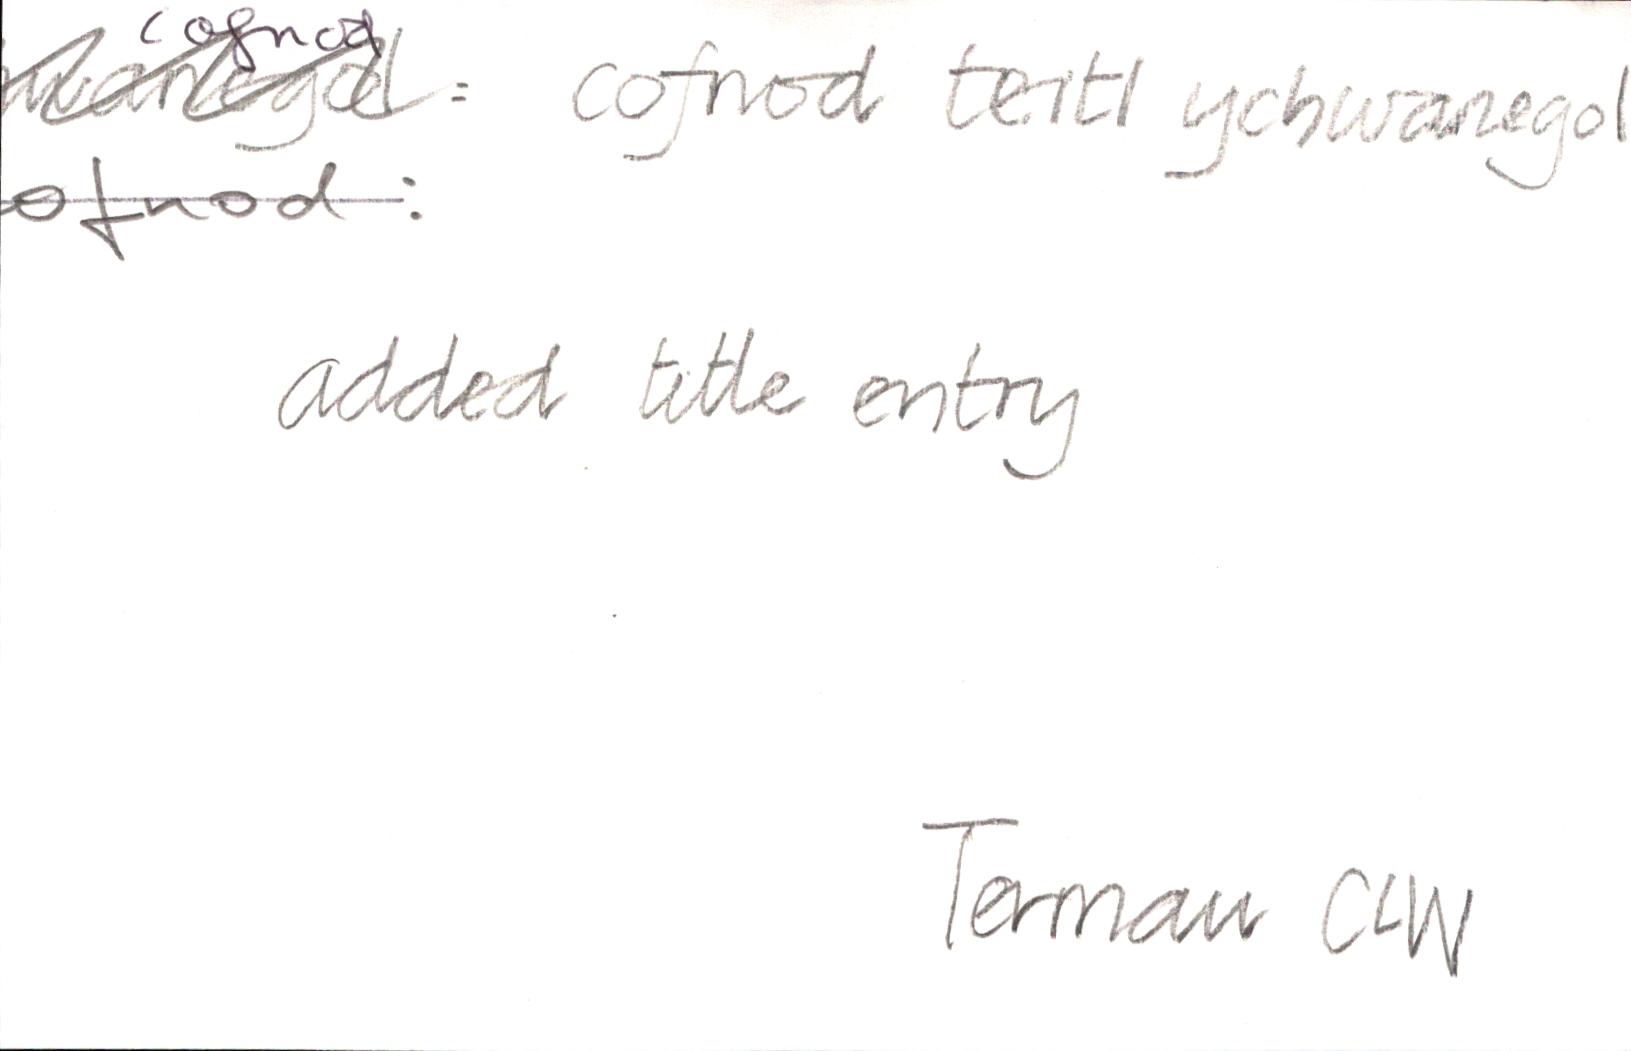 cofnod
wanegol: cofnod teitl ychwanegol
ofnod:
added title entry
Termau CLlW